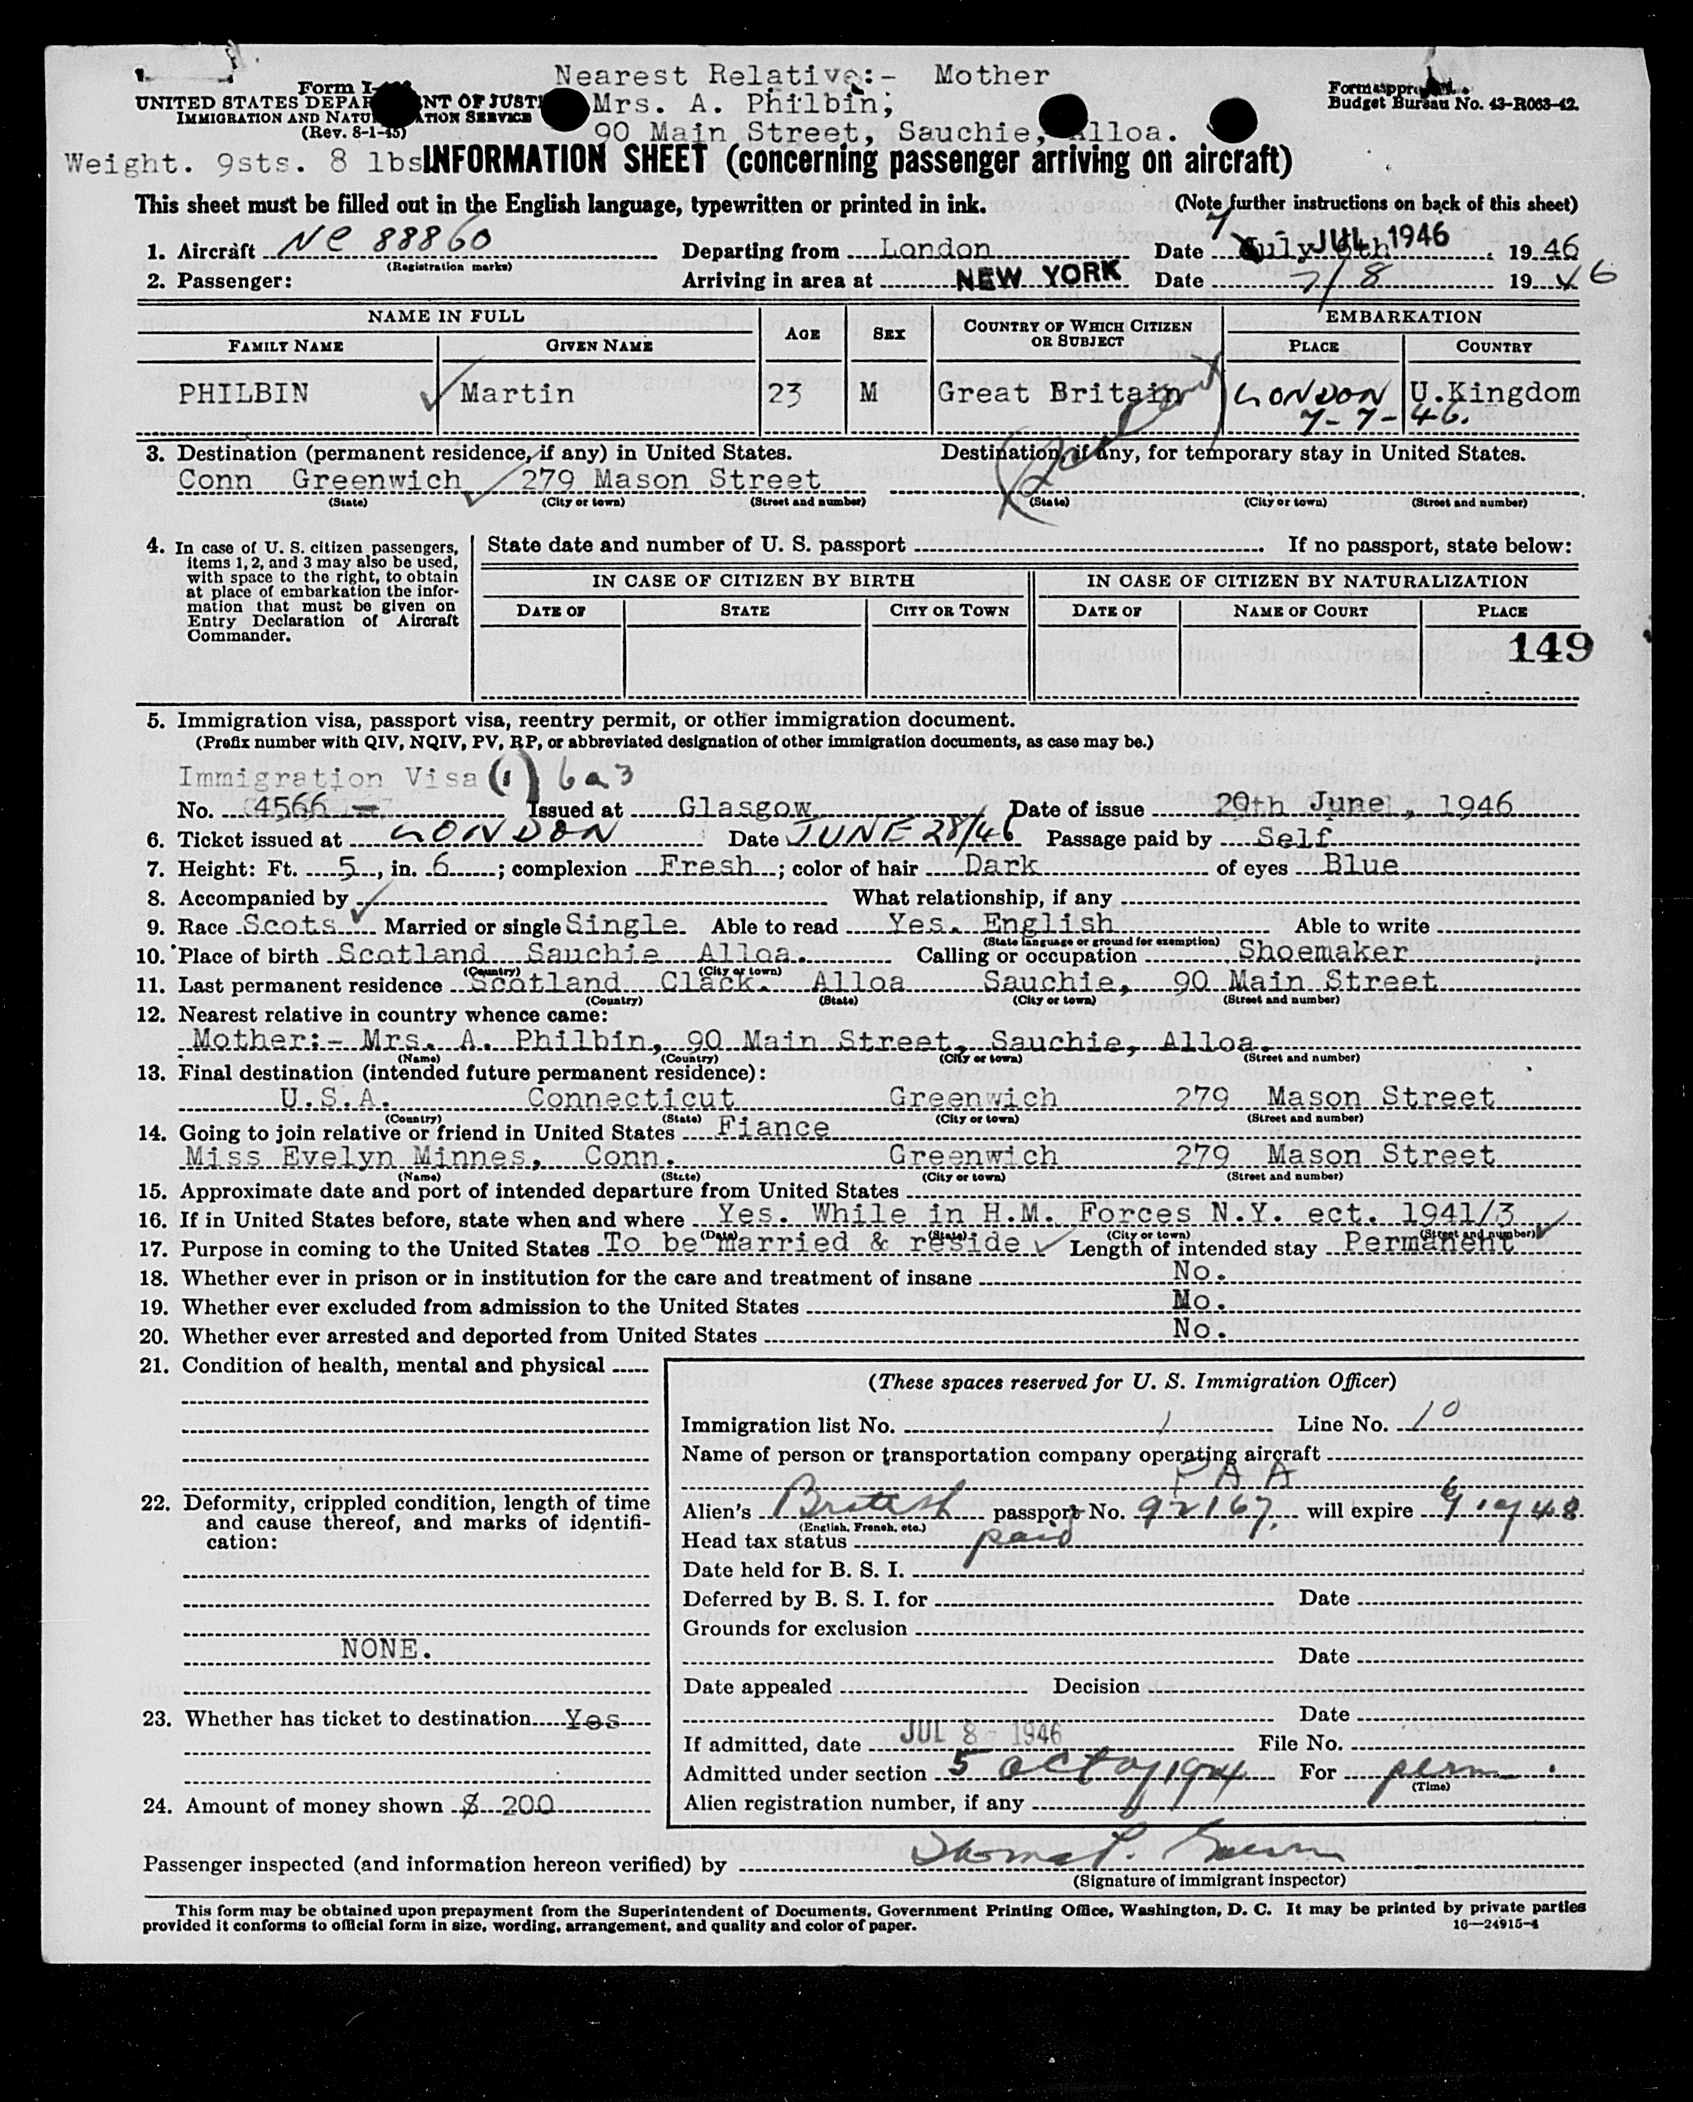 Nearest Relative:- Mother
Form I-
UNITED STATES DEPARTMENT OF JUSTICE Mrs. A. Philbin,
Form approved.
Budget Bureau No. 43-R063-42.
IMMIGRATION AND NATURALIZATION SERVICE
(Rev. 8-1-45) 90 Main Street, Sauchie, Alloa.
Weight. 9sts. 8 lbs. INFORMATION SHEET (concerning passenger arriving on aircraft)
This sheet must be filled out in the English language, typewritten or printed in ink. (Note further instructions on back of this sheet)
1. Aircraft NC 88860 Departing from London Date 7 July 6th JUL 1946 1946
(Registration marks)
2. Passenger: Arriving in area at NEW YORK Date 7/8 1946
NAME IN FULL AGE SEX COUNTRY OF WHICH CITIZEN OR SUBJECT EMBARKATION
FAMILY NAME GIVEN NAME PLACE COUNTRY
PHILBIN Martin 23 M Great Britain LONDON U.Kingdom
7-7-46.
3. Destination (permanent residence, if any) in United States. Destination, if any, for temporary stay in United States.
Conn Greenwich 279 Mason Street
(State) (City or town) (Street and number) (State) (City or town) (Street and number)
4. In case of U. S. citizen passengers, items 1, 2, and 3 may also be used, with space to the right, to obtain at place of embarkation the information that must be given on Entry Declaration of Aircraft Commander.
State date and number of U. S. passport If no passport, state below:
IN CASE OF CITIZEN BY BIRTH IN CASE OF CITIZEN BY NATURALIZATION
DATE OF STATE CITY OR TOWN DATE OF NAME OF COURT PLACE
149
5. Immigration visa, passport visa, reentry permit, or other immigration document.
(Prefix number with QIV, NQIV, PV, RP, or abbreviated designation of other immigration documents, as case may be.)
Immigration Visa (1) 6a3
No. 4566 Issued at Glasgow Date of issue 20th June, 1946
6. Ticket issued at LONDON Date JUNE 28/46 Passage paid by Self
7. Height: Ft. 5, in. 6; complexion Fresh; color of hair Dark of eyes Blue
8. Accompanied by What relationship, if any
9. Race Scots Married or single Single. Able to read Yes. English Able to write
(State language or ground for exemption)
10. Place of birth Scotland Sauchie Alloa. Calling or occupation Shoemaker
(Country) (City or town)
11. Last permanent residence Scotland Clack. Alloa Sauchie, 90 Main Street
(Country) (State) (City or town) (Street and number)
12. Nearest relative in country whence came:
Mother:- Mrs. A. Philbin, 90 Main Street, Sauchie, Alloa.
(Name) (Country) (City or town) (Street and number)
13. Final destination (intended future permanent residence):
U.S.A. Connecticut Greenwich 279 Mason Street
(Country) (State) (City or town) (Street and number)
14. Going to join relative or friend in United States Fiance
Miss Evelyn Minnes, Conn. Greenwich 279 Mason Street
(Name) (State) (City or town) (Street and number)
15. Approximate date and port of intended departure from United States
16. If in United States before, state when and where Yes. While in H.M. Forces N.Y. ect. 1941/3
(Date) (State) (City or town) (Street and number)
17. Purpose in coming to the United States To be married & reside Length of intended stay Permanent
18. Whether ever in prison or in institution for the care and treatment of insane No.
19. Whether ever excluded from admission to the United States No.
20. Whether ever arrested and deported from United States No.
21. Condition of health, mental and physical
22. Deformity, crippled condition, length of time and cause thereof, and marks of identification:
NONE.
23. Whether has ticket to destination Yes
24. Amount of money shown $ 200
(These spaces reserved for U. S. Immigration Officer)
Immigration list No. 1 Line No. 10
Name of person or transportation company operating aircraft
PAA
Alien's British passport No. 92167. will expire
(English, French, etc.)
Head tax status paid
Date held for B. S. I.
Deferred by B. S. I. for Date
Grounds for exclusion
Date
Date appealed Decision
Date
If admitted, date JUL 8 - 1946 File No.
Admitted under section 5 act of 1924 For perm
(Time)
Alien registration number, if any
Passenger inspected (and information hereon verified) by
(Signature of immigrant inspector)
This form may be obtained upon prepayment from the Superintendent of Documents, Government Printing Office, Washington, D. C. It may be printed by private parties
provided it conforms to official form in size, wording, arrangement, and quality and color of paper. 16—24915-4